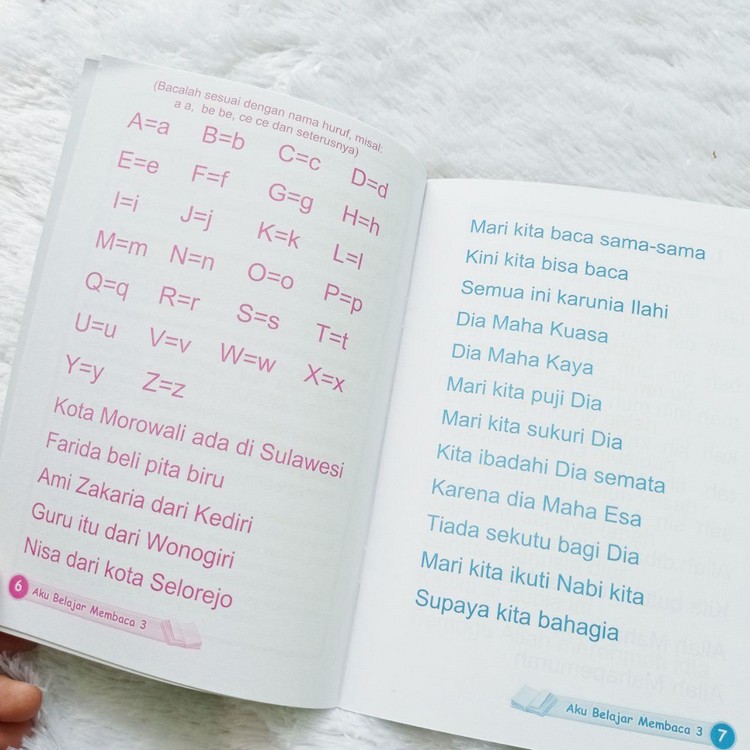 (Bacalah sesuai dengan nama huruf, misal:
a a, be be, ce ce dan seterusnya)
A=a B=b C=c D=d
E=e F=f G=g H=h
I=i J=j K=k L=l
M=m N=n O=o P=p
Q=q R=r S=s T=t
U=u V=v W=w X=x
Y=y Z=z
Kota Morowali ada di Sulawesi
Farida beli pita biru
Ami Zakaria dari Kediri
Guru itu dari Wonogiri
Nisa dari kota Selorejo
6 Aku Belajar Membaca 3
Mari kita baca sama-sama
Kini kita bisa baca
Semua ini karunia Ilahi
Dia Maha Kuasa
Dia Maha Kaya
Mari kita puji Dia
Mari kita sukuri Dia
Kita ibadahi Dia semata
Karena dia Maha Esa
Tiada sekutu bagi Dia
Mari kita ikuti Nabi kita
Supaya kita bahagia
Aku Belajar Membaca 3 7